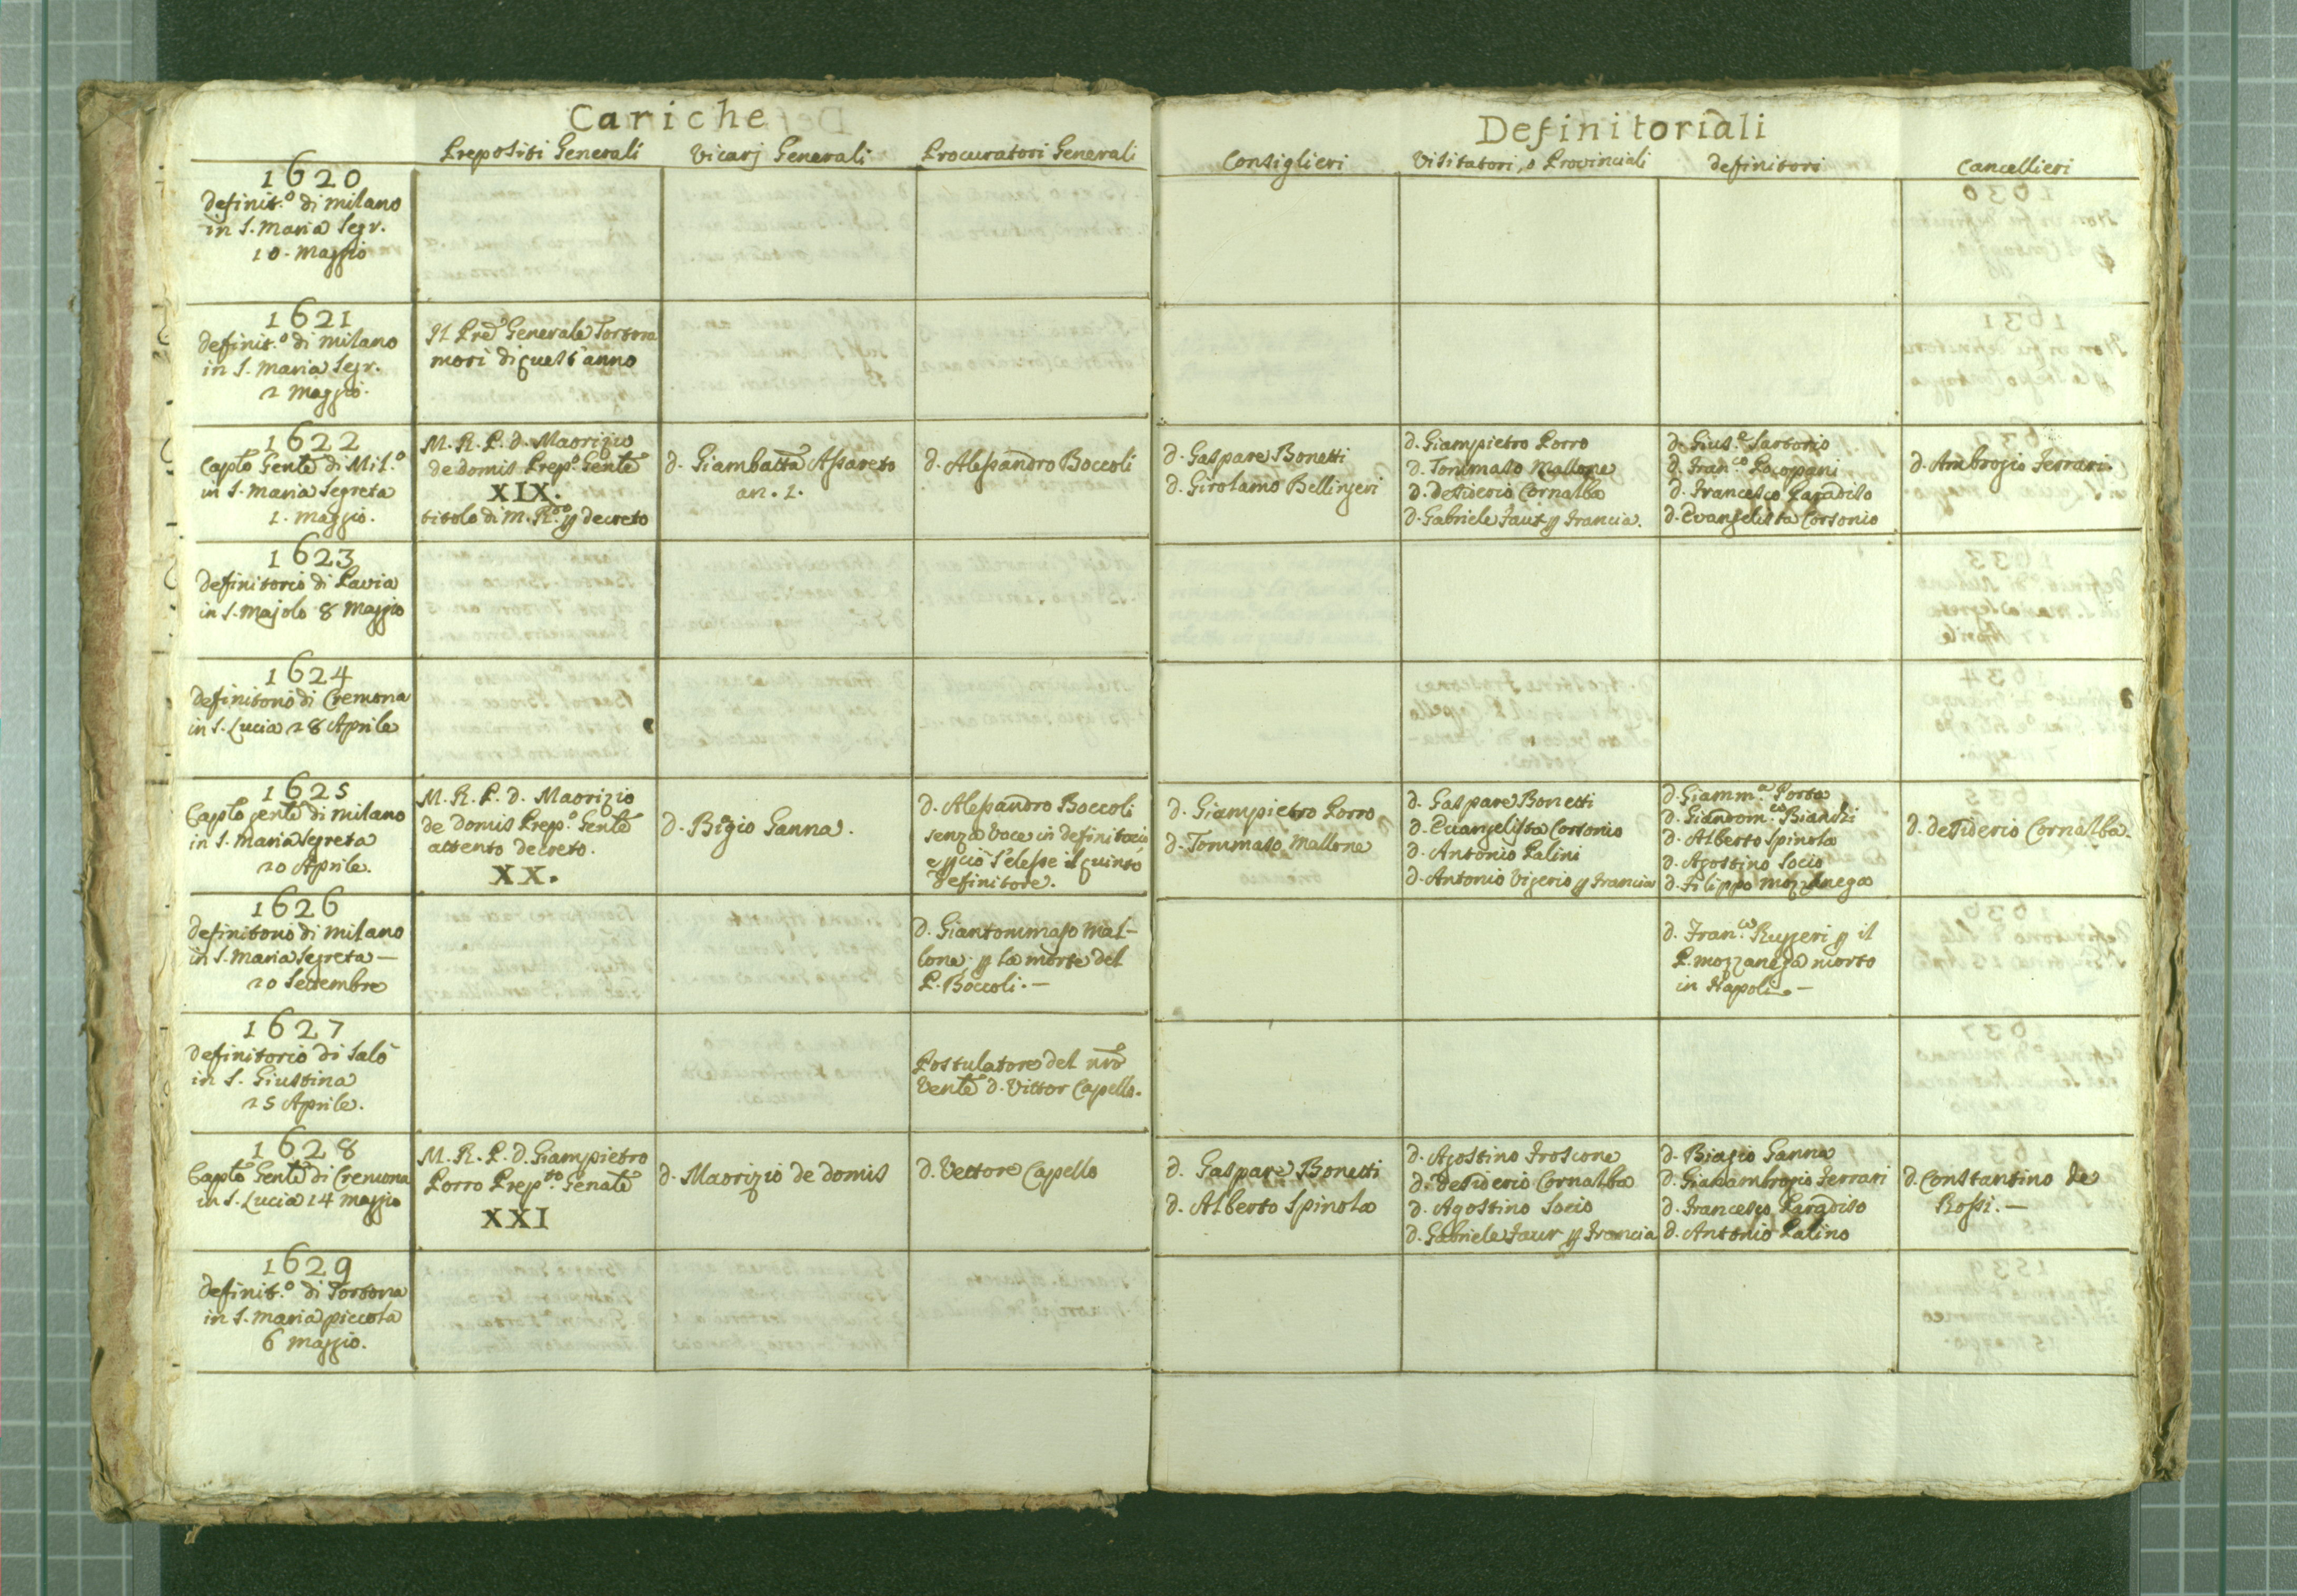 Cariche
Prepositi Generali Vicarj Generali Procuratori Generali
1620
Definit.º di Milano
in S. Maria Segr.
10. Maggio
1621
Definit.º di Milano
in S. Maria Segr.
2 Maggio.
Il Pre Generale Tortora
morì di quest'anno
1622
Caplo Genle di Mil.º
in S. Maria Segreta
1. Maggio.
M. R. P. D. Maorizio
de Domis Prep.º Genle
XIX.
titolo di M. R.do p decreto
D. Giambatta Assareto
an. 1.
D. Alessandro Boccoli
1623
Definitorio di Pavia
in S. Majolo 8 Maggio
1624
Definitorio di Cremona
in S. Lucia 28 Aprile
1625
Caplo genle di Milano
in S. Maria Segreta
20 Aprile.
M. R. P. D. Maorizio
de Domis Prep.º Genle
attento decreto.
XX.
D. Bigio Ganna.
D. Alessandro Boccoli
senza voce in definitorio
e p ciò s'elesse il quinto
definitore.
1626
Definitorio di Milano
in S. Maria Segreta —
20 Settembre
D. Giantommaso Mal-
lone p la morte del
P. Boccoli. —
1627
Definitorio di Salò
in S. Giustina
25 Aprile.
Postulatore del nro
Venle D. Vittor Capello.
1628
Caplo Genle di Cremona
in S. Lucia 14 Maggio
M. R. P. D. Giampietro
Porro Prep.to Genale
XXI
D. Maorizio de Domis
D. Vettore Capello
1629
Definit.º di Tortona
in S. Maria piccola
6 Maggio.
Definitoriali
Consiglieri Visitatori, o Provinciali Definitori Cancellieri
D. Gaspare Bonetti
D. Girolamo Bellingeri
D. Giampietro Porro
D. Tommaso Mallone
D. Desiderio Cornalba
D. Gabriele Faur p Francia.
D. Gius.e Sartorio
D. Fran.co Pocopani
D. Francesco Paradiso
D. Evangelista Cortonio
D. Ambrogio Ferrari.
D. Giampietro Porro
D. Tommaso Mallone
D. Gaspare Bonetti
D. Evangelista Cortonio
D. Antonio Palini
D. Antonio Vigerio p Francia
D. Giamm.a Porta
D. Giandom.co Bianchi
D. Alberto Spinola
D. Agostino Socio
D. Filippo Mozzanega
D. Desiderio Cornalba.
D. Fran.co Ruggeri p il
P. Mozzanega morto
in Napoli. —
D. Gaspare Bonetti
D. Alberto Spinola
D. Agostino Froscone
D. Desiderio Cornalba
D. Agostino Socio
D. Gabriele Faur p Francia
D. Biagio Ganna
D. Gianambrogio Ferrari
D. Francesco Paradiso
D. Antonio Palino
D. Constantino De
Rossi. —